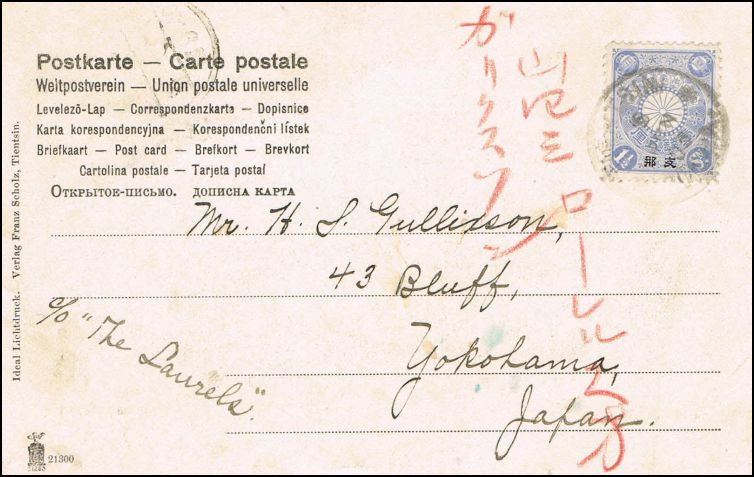 Postkarte — Carte postale
Weltpostverein — Union postale universelle
Levelező-Lap — Correspondenzkarte — Dopisnice
Karta korespondencyjna — Korespondenční lístek
Briefkaart — Post card — Brefkort — Brevkort
Cartolina postale — Tarjeta postal
Открытое-письмо. дописна карта
Mr. H. S. Gullixson,
43 Bluff,
Yokohama,
Japan.
c/o "The Laurels".
ガリクスソン
山四三
ローレル
方
支那
1½
Ideal Lichtdruck. Verlag Franz Scholz, Tientsin.
21300